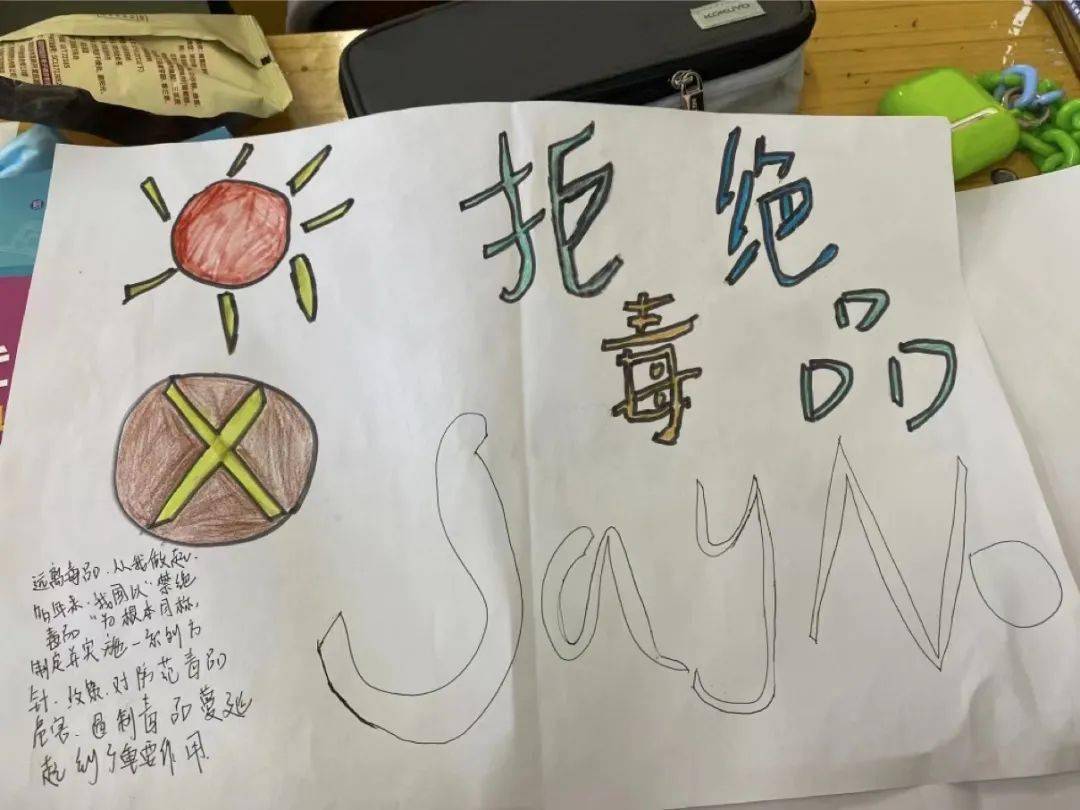 KOKUYO
拒绝
毒品
Say No
远离毒品.从我做起.
年来.我国以“禁绝
毒品”为根本目标,
制定并实施一系列方
针.政策.对防范毒品
危害.遏制毒品蔓延
起到了重要作用.